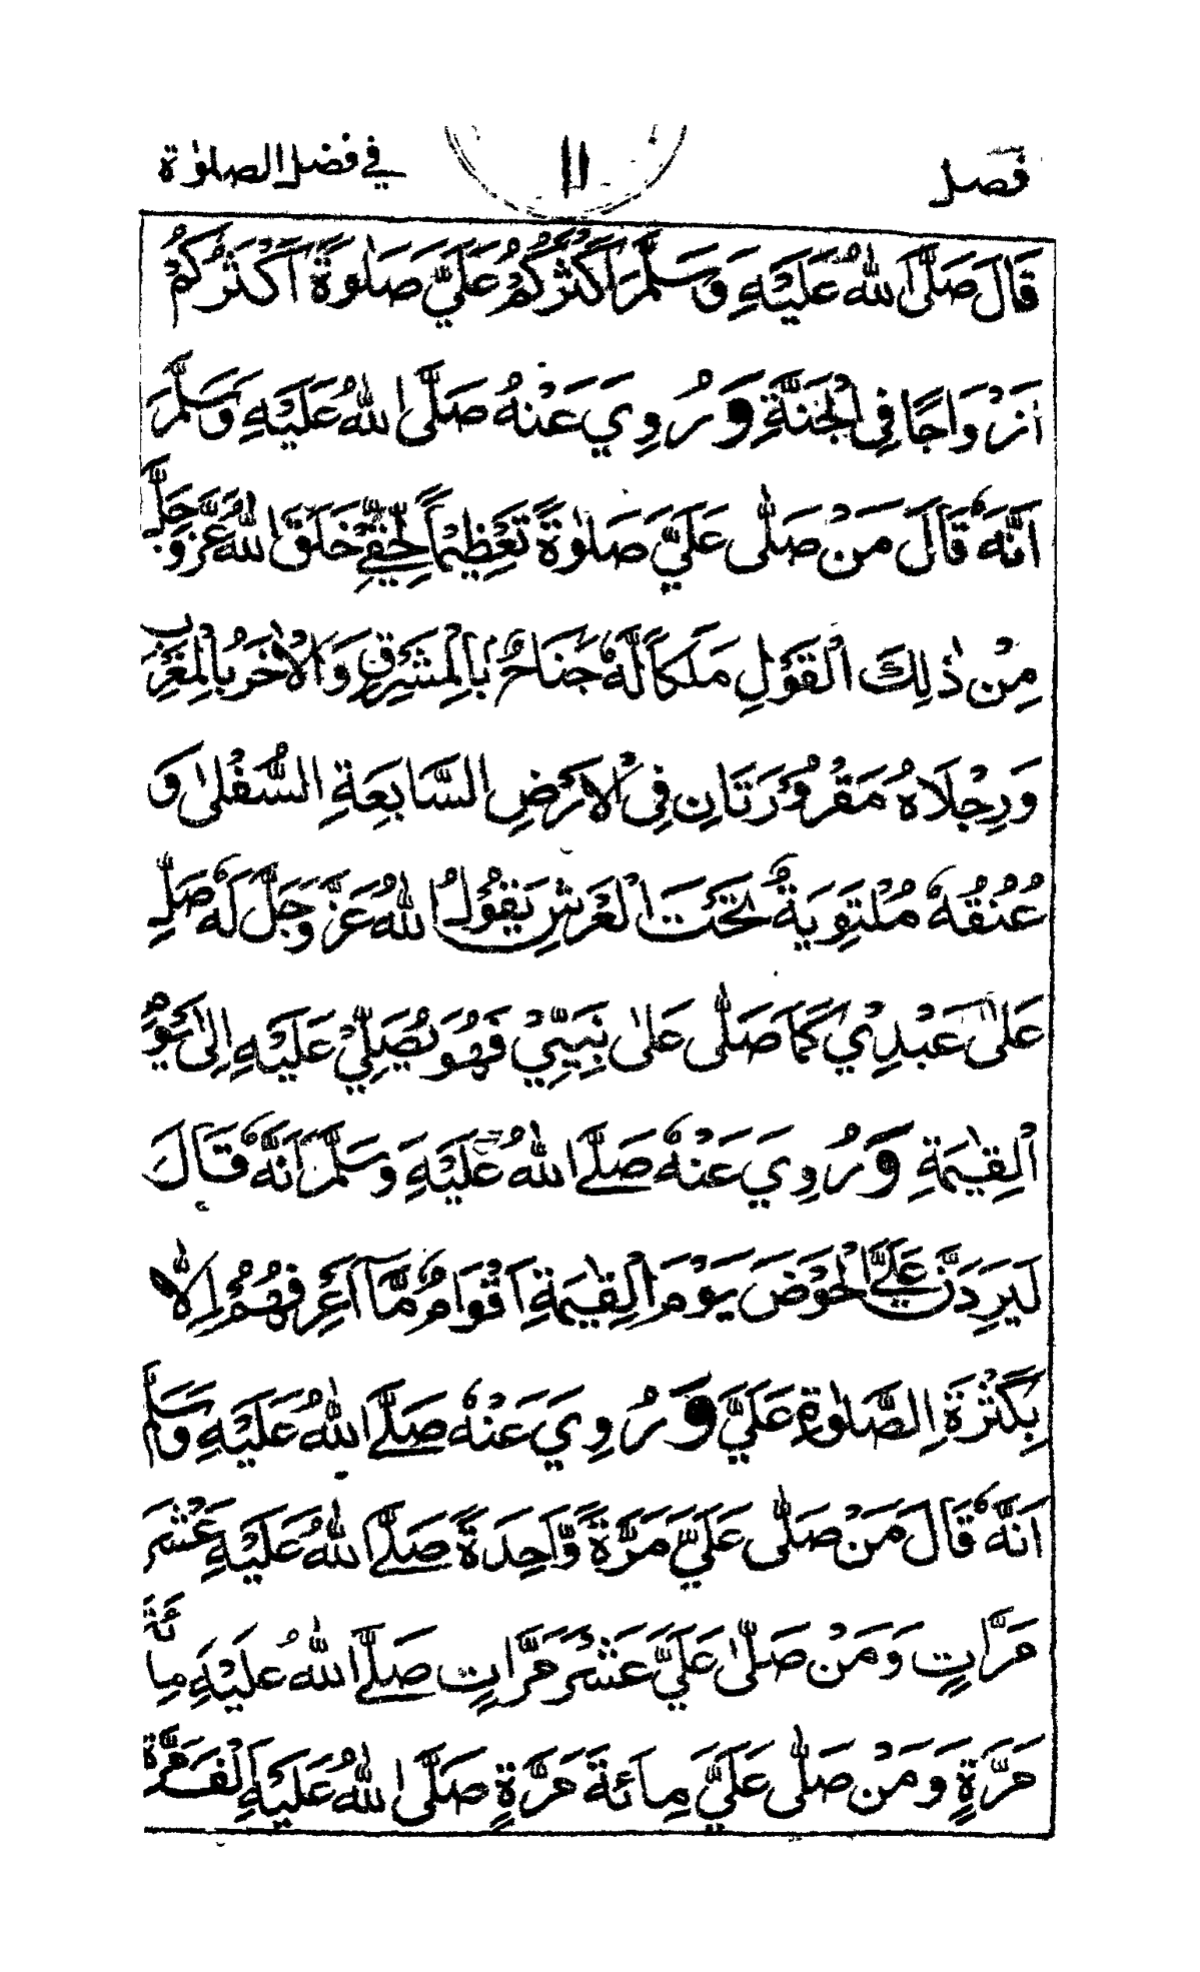 فصل ١١ في فضل الصلوٰة
قَالَ صَلَّى اللهُ عَلَيْهِ وَسَلَّمَ اَكْثَرُكُمْ عَلَيَّ صَلٰوةً اَكْثَرُكُمْ
اَزْوَاجًا فِى الْجَنَّةِ وَرُوِيَ عَنْهُ صَلَّى اللهُ عَلَيْهِ وَسَلَّمَ
اَنَّهٗ قَالَ مَنْ صَلّٰى عَلَيَّ صَلٰوةً تَعْظِيْمًا لِّحَقِّيْ خَلَقَ اللهُ عَزَّ وَجَلَّ
مِنْ ذٰلِكَ الْقَوْلِ مَلَكًا لَّهٗ جَنَاحٌ بِالْمَشْرِقِ وَالْاٰخَرُ بِالْمَغْرِبِ
وَرِجْلَاهُ مَقْرُوْرَتَانِ فِى الْاَرْضِ السَّابِعَةِ السُّفْلٰى وَ
عُنُقُهٗ مُلْتَوِيَةٌ تَحْتَ الْعَرْشِ يَقُوْلُ اللهُ عَزَّ وَجَلَّ لَهٗ صَلِّ
عَلٰى عَبْدِيْ كَمَا صَلّٰى عَلٰى نَبِيِّيْ فَهُوَ يُصَلِّيْ عَلَيْهِ اِلٰى يَوْمِ
الْقِيٰمَةِ وَرُوِيَ عَنْهُ صَلَّى اللهُ عَلَيْهِ وَسَلَّمَ اَنَّهٗ قَالَ
لَيَرِدَنَّ عَلَيَّ الْحَوْضَ يَوْمَ الْقِيٰمَةِ اَقْوَامٌ مَّآ اَعْرِفُهُمْ اِلَّا
بِكَثْرَةِ الصَّلٰوةِ عَلَيَّ وَرُوِيَ عَنْهُ صَلَّى اللهُ عَلَيْهِ وَسَلَّمَ
اَنَّهٗ قَالَ مَنْ صَلّٰى عَلَيَّ مَرَّةً وَّاحِدَةً صَلَّى اللهُ عَلَيْهِ عَشْرَ
مَرَّاتٍ وَمَنْ صَلّٰى عَلَيَّ عَشْرَ مَرَّاتٍ صَلَّى اللهُ عَلَيْهِ مِائَةَ
مَرَّةٍ وَمَنْ صَلّٰى عَلَيَّ مِائَةَ مَرَّةٍ صَلَّى اللهُ عَلَيْهِ اَلْفَ مَرَّةٍ